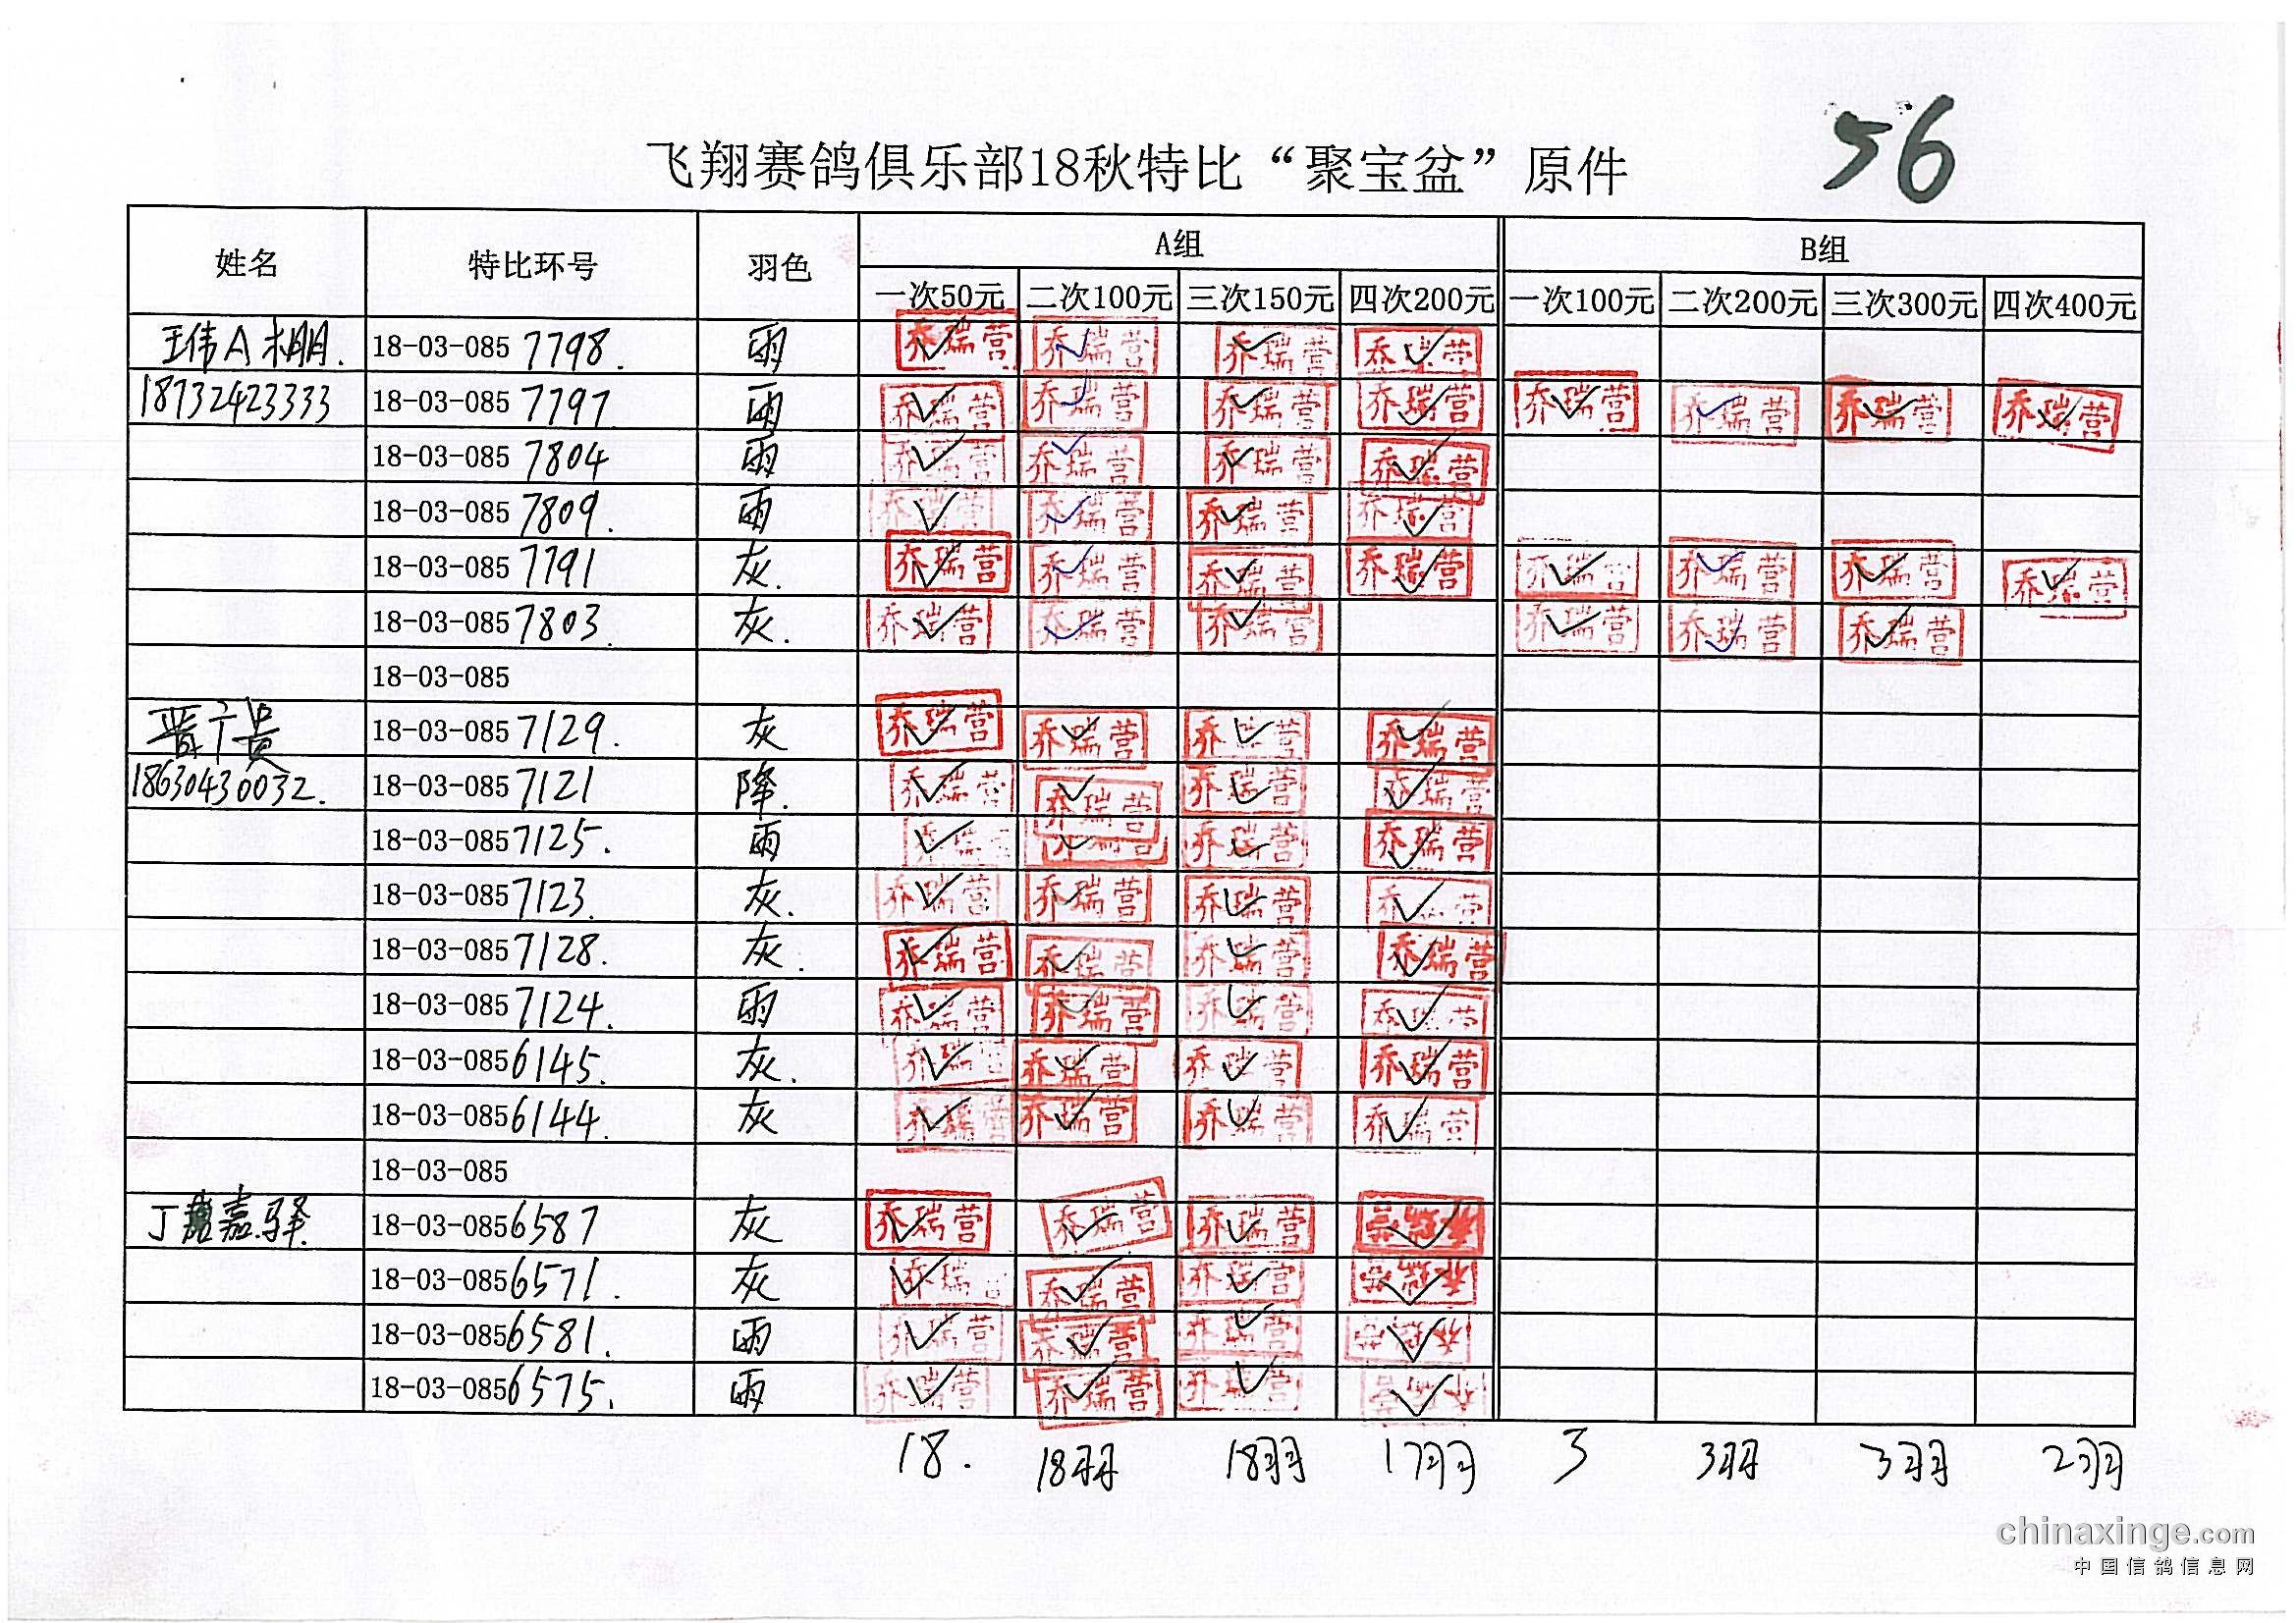 56
飞翔赛鸽俱乐部18秋特比“聚宝盆”原件
姓名 特比环号 羽色 A组 B组
一次50元 二次100元 三次150元 四次200元 一次100元 二次200元 三次300元 四次400元
王伟A 棚. 18-03-085 7798. 雨 乔瑞营 乔瑞营 乔瑞营 乔瑞营
18732423333 18-03-085 7797 雨 乔瑞营 乔瑞营 乔瑞营 乔瑞营 乔瑞营 乔瑞营 乔瑞营 乔瑞营
18-03-085 7804 雨 乔瑞营 乔瑞营 乔瑞营 乔瑞营
18-03-085 7809. 雨 乔瑞营 乔瑞营 乔瑞营 乔瑞营
18-03-085 7791 灰. 乔瑞营 乔瑞营 乔瑞营 乔瑞营 乔瑞营 乔瑞营 乔瑞营 乔瑞营
18-03-085 7803. 灰. 乔瑞营 乔瑞营 乔瑞营 乔瑞营 乔瑞营 乔瑞营
18-03-085
晋广贵 18-03-085 7129. 灰 乔瑞营 乔瑞营 乔瑞营 乔瑞营
18630430032. 18-03-085 7121 降. 乔瑞营 乔瑞营 乔瑞营 乔瑞营
18-03-085 7125. 雨 乔瑞营 乔瑞营 乔瑞营 乔瑞营
18-03-085 7123. 灰. 乔瑞营 乔瑞营 乔瑞营 乔瑞营
18-03-085 7128. 灰. 乔瑞营 乔瑞营 乔瑞营 乔瑞营
18-03-085 7124. 雨 乔瑞营 乔瑞营 乔瑞营 乔瑞营
18-03-085 6145. 灰. 乔瑞营 乔瑞营 乔瑞营 乔瑞营
18-03-085 6144. 灰 乔瑞营 乔瑞营 乔瑞营 乔瑞营
18-03-085
丁嘉驿. 18-03-085 6587 灰 乔瑞营 乔瑞营 乔瑞营 乔瑞营
18-03-085 6571. 灰 乔瑞营 乔瑞营 乔瑞营 乔瑞营
18-03-085 6581. 雨 乔瑞营 乔瑞营 乔瑞营 乔瑞营
18-03-085 6575. 雨 乔瑞营 乔瑞营 乔瑞营 乔瑞营
18. 18羽 18羽 17羽 3 3羽 3羽 2羽
chinaxinge.com
中国信鸽信息网